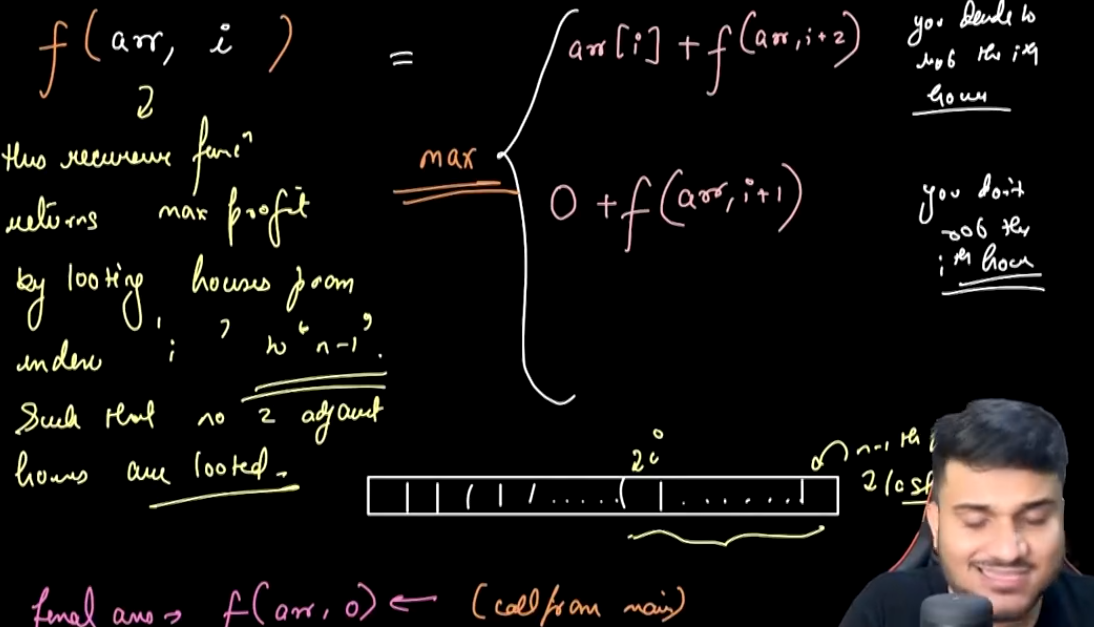 f(arr, i) =
max
arr[i] + f(arr, i+2)
you decide to
rob the ith
house
0 + f(arr, i+1)
you don't
rob the
ith house
this recursive funcn
returns max profit
by looting houses from
index 'i' to 'n-1'.
Such that no 2 adjacent
houses are looted.
i
n-1 th
last
final ans → f(arr, 0) ← (call from main)